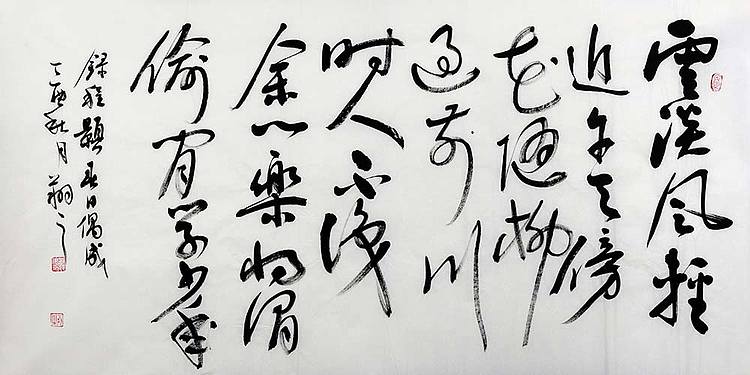 雲淡风輕
近午天傍
花随柳
过前川
时人不識
余心樂将谓
偷闲学少年
録程顥春日偶成
丁酉秋月